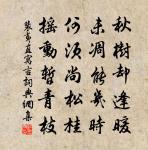 秋樹却逢暖
未凋能幾時
何須尚松桂
搖動暫青枝
裴夷直寫言詞典網集